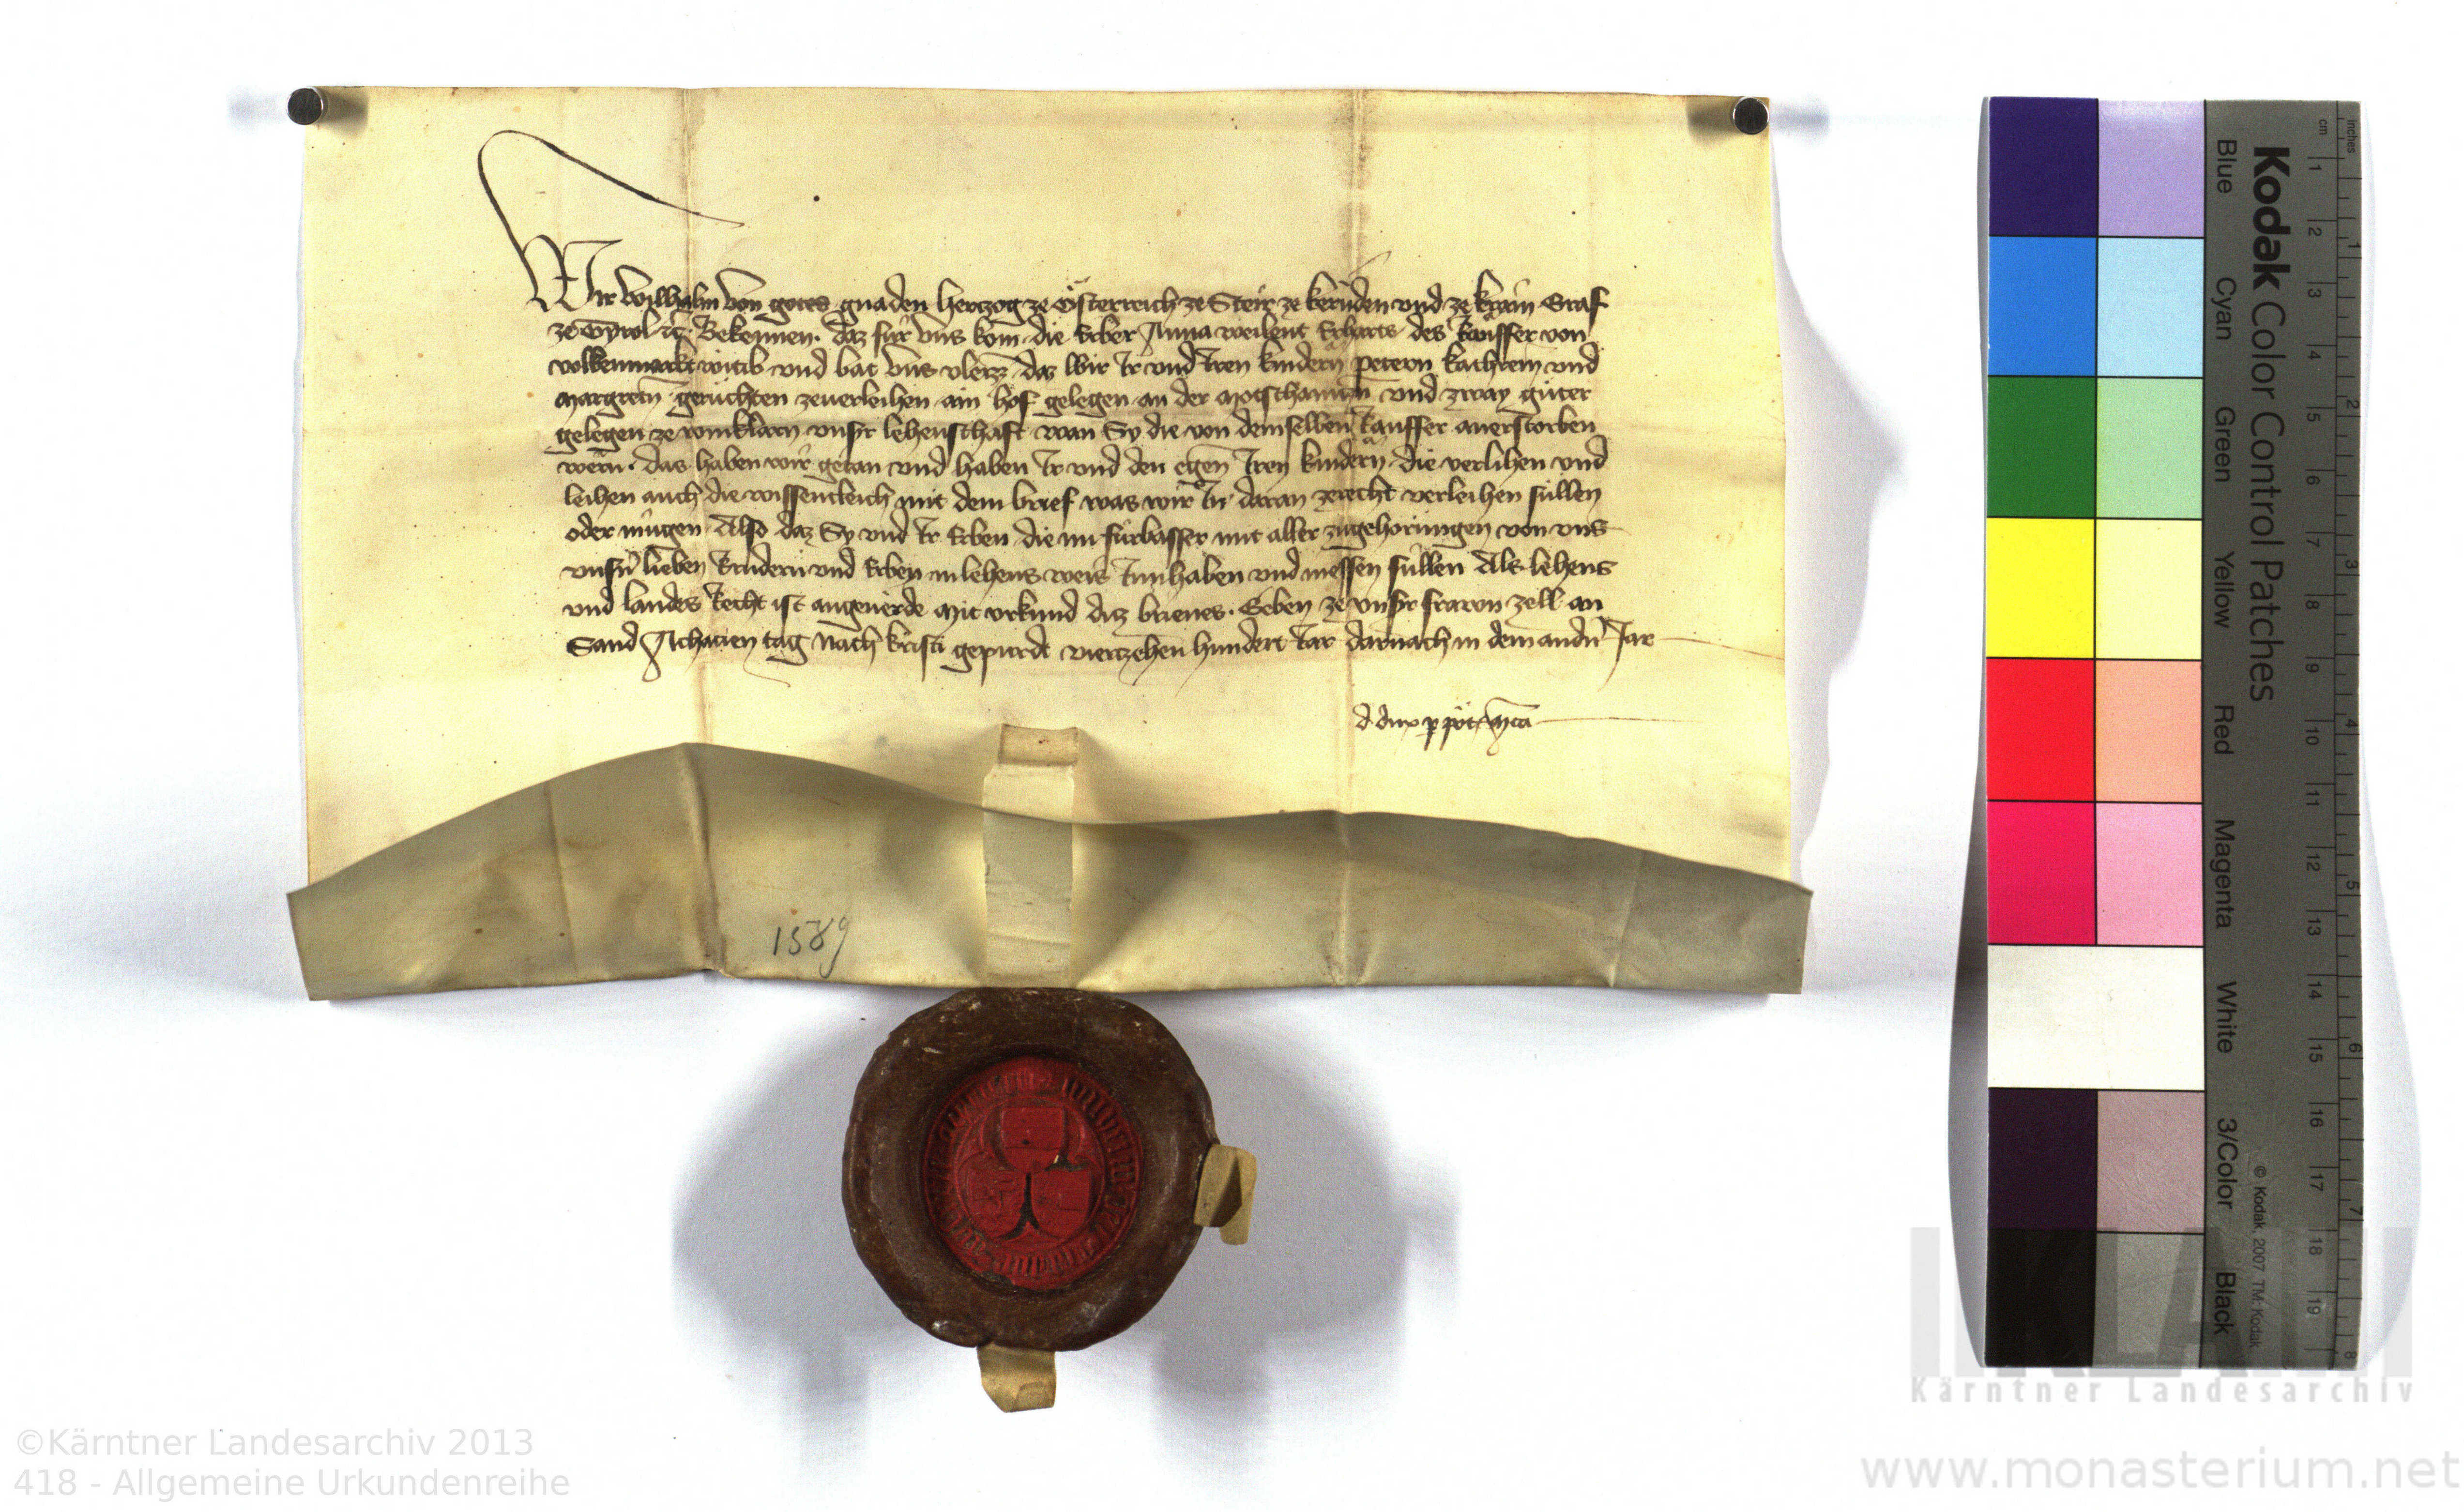 Wir Wilhalm von gotes gnaden Hertzog ze Österreich ze Steir ze kernden und ze krain Graf
ze Tyrol etc. Bekennen. daz für uns kom die Erber Anna weilent Erharts des Kauffer von
volkenmarkt witib und bat uns vleizz daz Wir Ir und Iren kindern petern kathrein und
margreten geruchten zeverleihen ain hof gelegen an der und zway güter
gelegen ze winklarn unsr lehenschaft wan Sy die von demselben Kauffer anerstorben
wern. das haben wir getan und haben Ir und den egen Iren kindern die verlihen und
leihen auch die wissentleich mit dem brief was wir In daran zerecht verleihen süllen
oder mügen Also daz Sy und Ir Erben die nu fürbasser mit aller zugehörungen von uns
unsn lieben Brudern und Erben in lehens weis Innhaben und niessen süllen Als lehens
und landes Recht ist angeverde Mit urkund diz brieves. Geben ze unsr frawn zell an
Sand Achacien tag Nach kristi gepurde viertzehen hundert Jar darnach in dem andn Jar
d. dux p
1589
Kodak Color Control Patches
Blue Cyan Green Yellow Red Magenta White 3/Color Black
cm 1 2 3 4 5 6 7 8 9 10 11 12 13 14 15 16 17 18 19
inches 1 2 3 4 5 6 7 8
© Kodak, 2007 TM: Kodak
Kärntner Landesarchiv
©Kärntner Landesarchiv 2013
418 - Allgemeine Urkundenreihe
www.monasterium.net